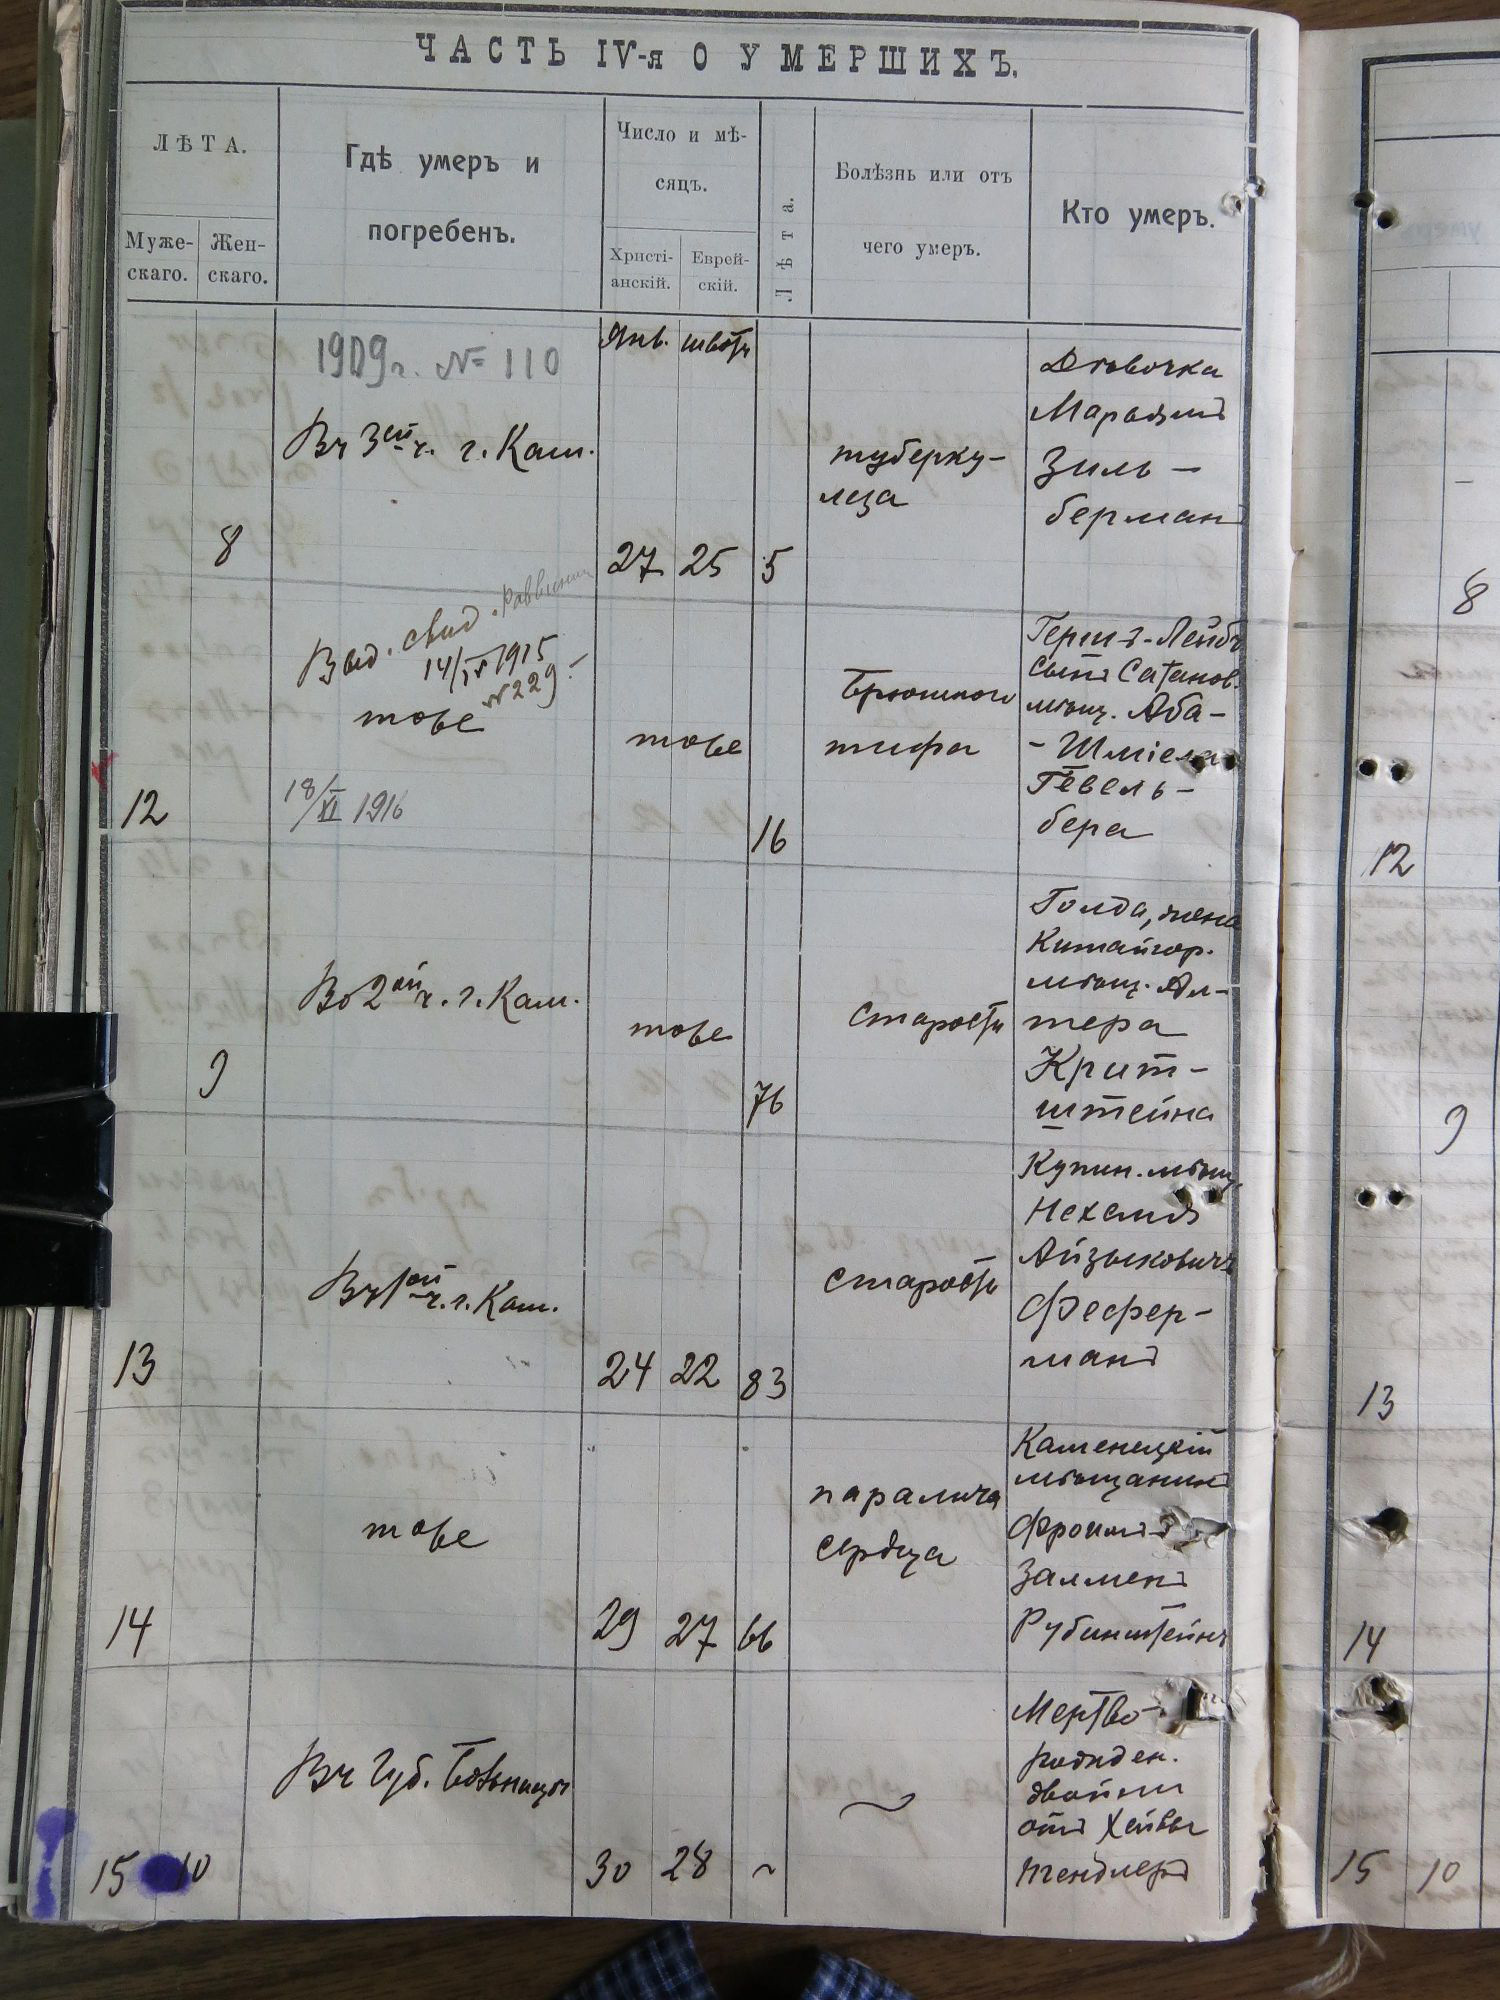 ЧАСТЬ IV-я О УМЕРШИХЪ.
ЛѢТА.
Муже-
скаго.
Жен-
скаго.
Гдѣ умеръ и
погребенъ.
Число и мѣ-
сяцъ.
Христі-
анскій.
Еврей-
скій.
Лѣта.
Болѣзнь или отъ
чего умеръ.
Кто умеръ.
1909 г. № 110
Янв. шватъ
Въ 3ей ч. г. Кам.
туберку-
леза
Дѣвочка
Марьямъ
Зиль-
берманъ
8
27 25 5
8
Выд. свид.
14/IX 1915
№ 229.
тоже
18/XI 1916
тоже
Брюшного
тифа
Герш-Лейбъ
сынъ Сатанов.
мѣщ. Аба-
-Шміела
Гевель-
бера
12
16
12
Во 2ой ч. г. Кам.
тоже
старости
Голда, жена
Китайгор.
мѣщ. Ал-
тера
Крит-
штейна
9
76
9
Въ 1ой ч. г. Кам.
старости
Купин. мѣщ.
Нехемія
Айзыковичъ
Фефер-
манъ
13
24 22 83
13
тоже
паралича
сердца
Каменецкій
мѣщанинъ
Фроимъ-
Залменъ
Рубинштейнъ
14
29 27 66
14
Въ Губ. Больницѣ
Мертво-
рожден.
двойни
отъ Хейвы
Тендлеръ
15 10
30 28 ~
15 10